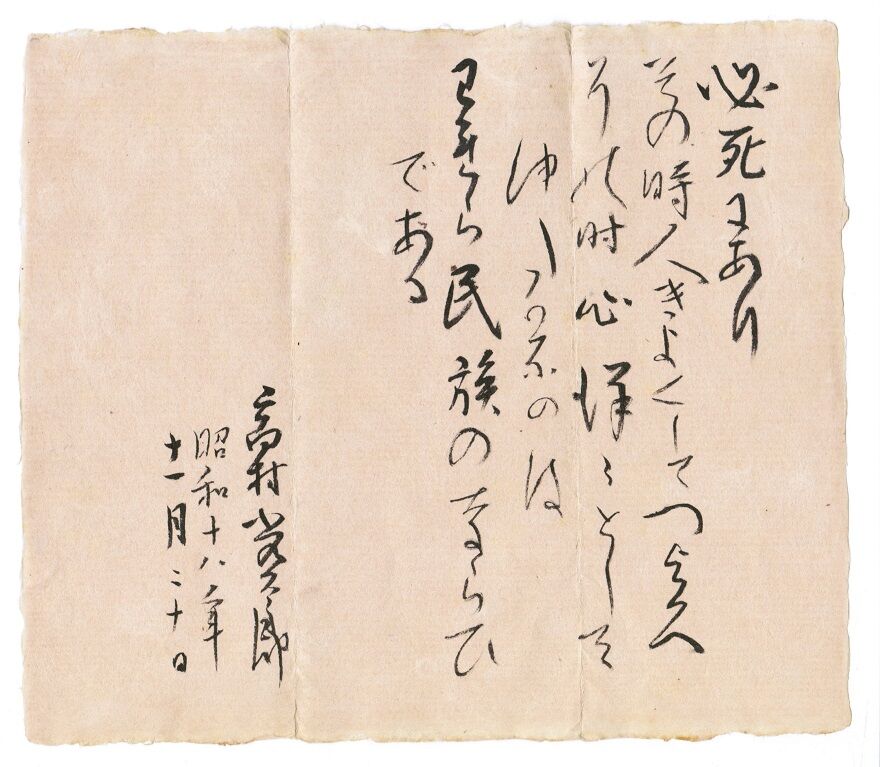 必死にあり
その時人きよくしてつよく
その時心洋々として
ゆたかなのは
われら民族のならひ
である
高村光太郎
昭和十八年
十一月二十日